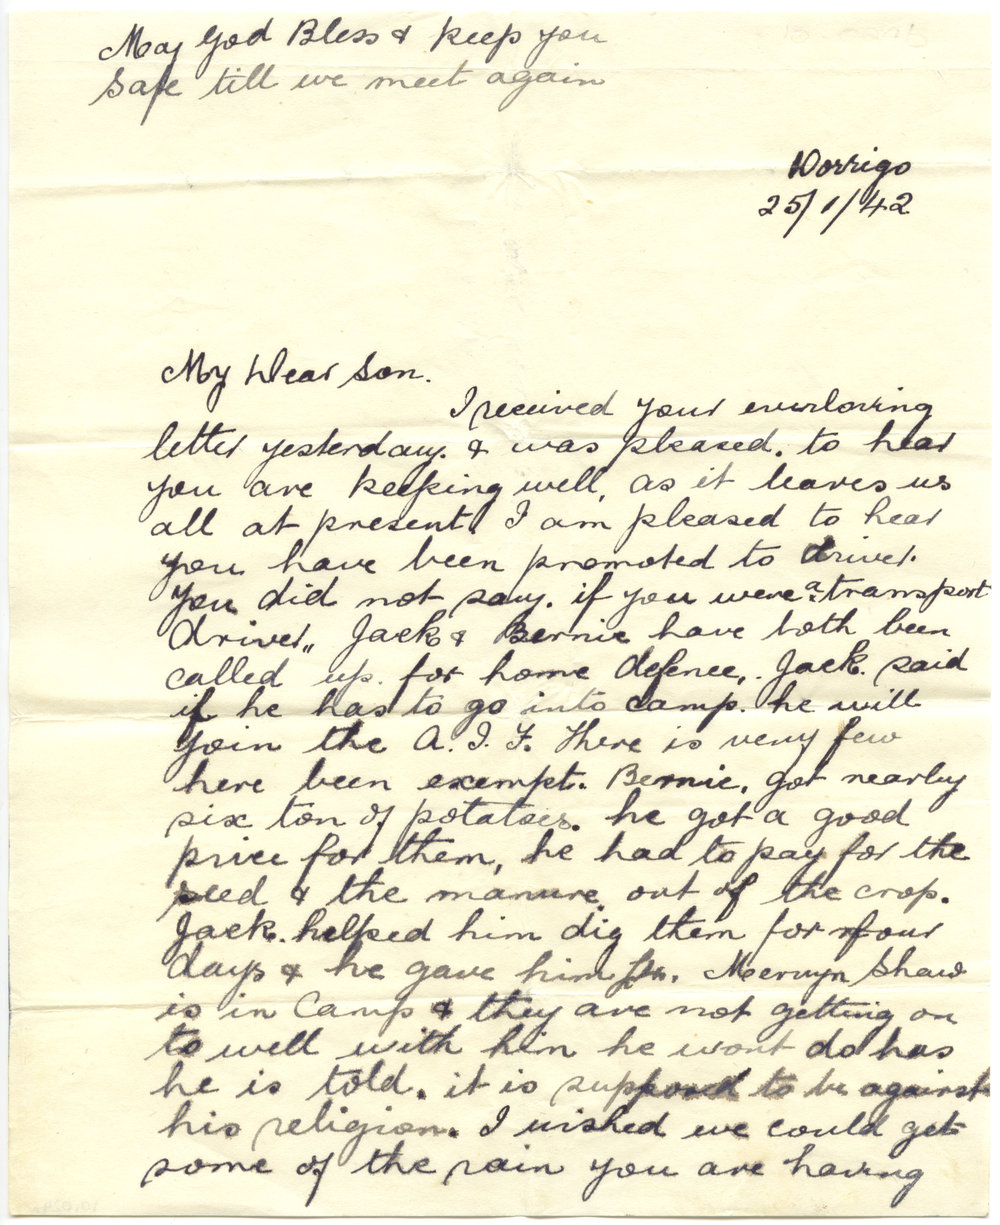 May God Bless & keep you
safe till we meet again
Dorrigo
25/1/42
My Dear Son.
I received your everloving
letter yesterday. & was pleased. to hear
you are keeping well, as it leaves us
all at present. I am pleased to hear
you have been promoted to driver.
You did not say. if you were a transport
driver,, Jack & Bernie have both been
called up. for home defence,. Jack. said
if he has to go into camp. he will
join the A. I. F. There is very few
here been exempt. Bernie. got nearly
six ton of potatoes. he got a good
price for them, he had to pay for the
seed & the manure. out of the crop.
Jack. helped him dig them for four
days & he gave him Mervyn Shaw
is in Camp & they are not getting on
to well with him he wont do has
he is told. it is supposed to be against
his religion. I wished we could get
some of the rain you are having